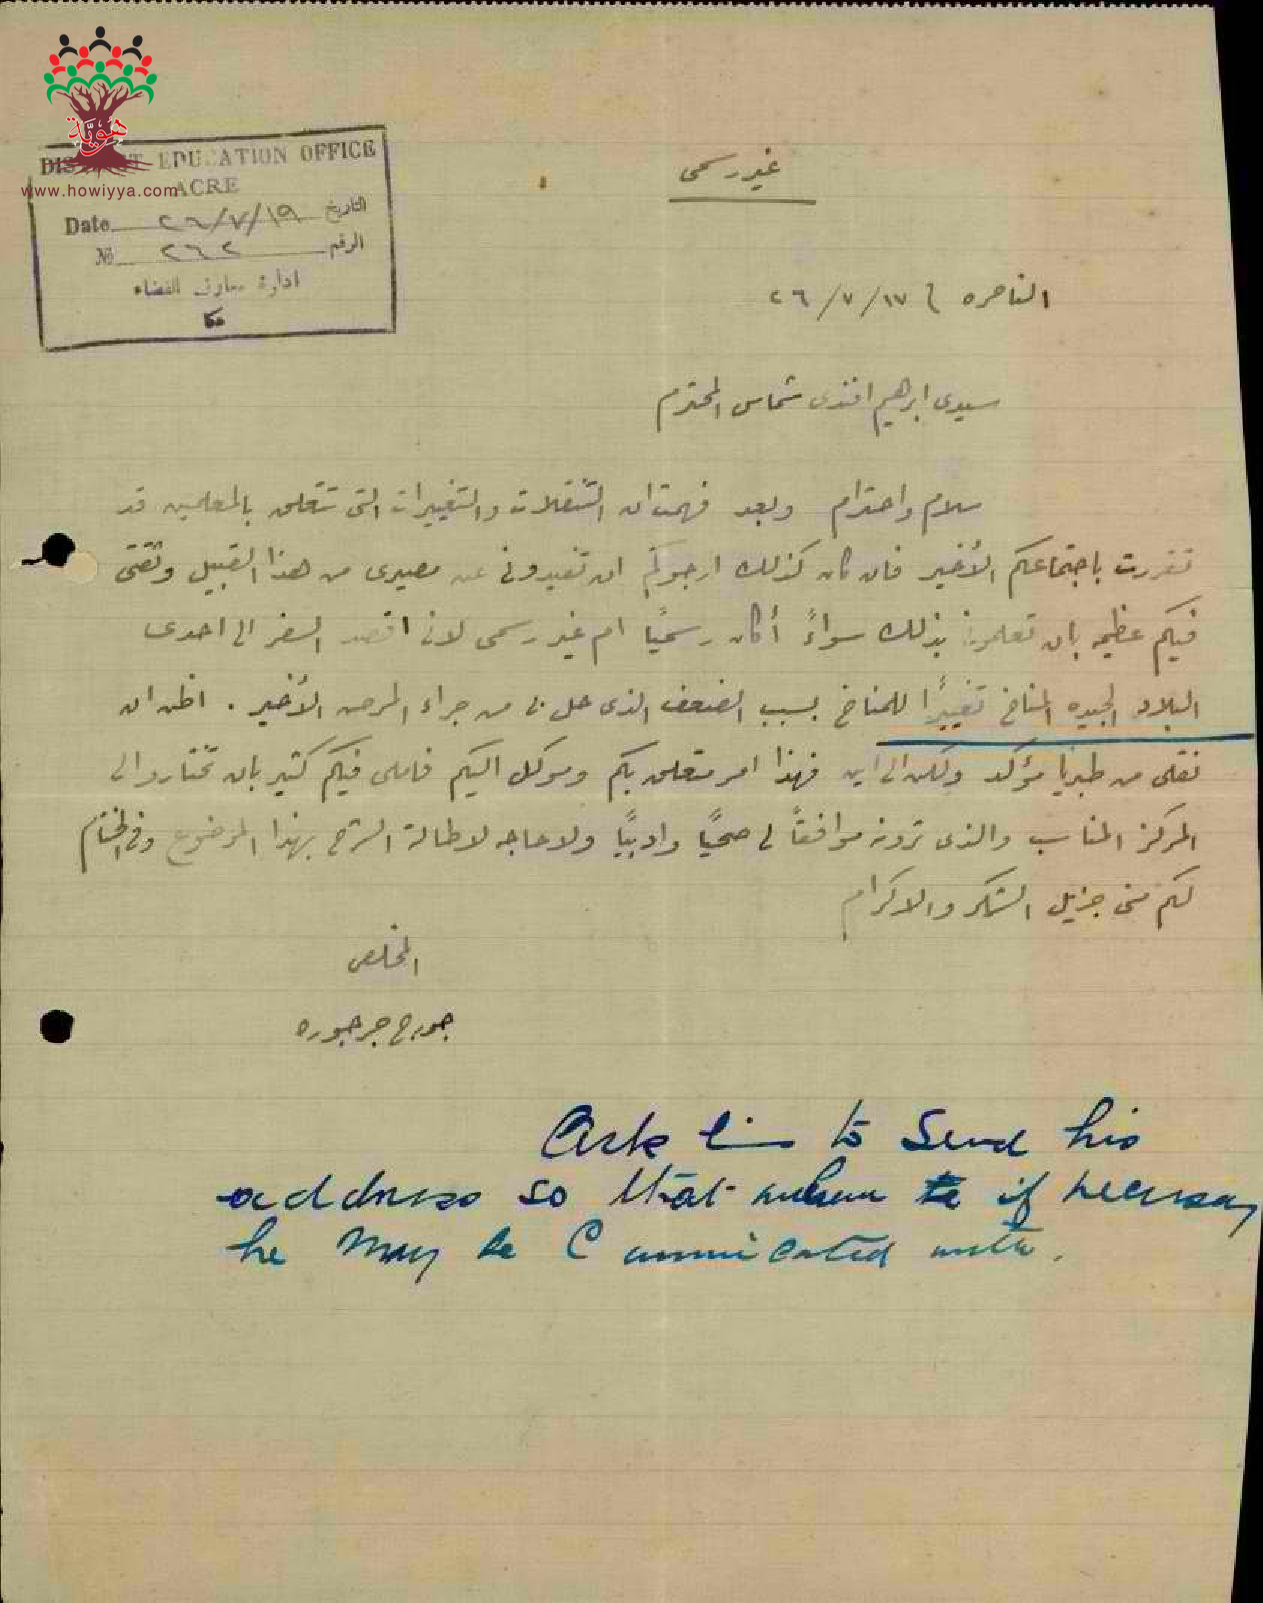 هويّة
www.howiyya.com
DISTRICT EDUCATION OFFICE
ACRE
Date ٢٦/٧/١٩ التاريخ
№ ٢٦٢ الرقم
ادارة معارف القضاء
عكا
غير رسمي
الناصره في ١٧/٧/٢٦
سيدي ابرهيم افندي شماس المحترم
سلام واحترام وبعد فهمت ان التنقلات والتغييرات التي تتعلق بالمعلمين قد
تقررت باجتماعكم الأخير فان كان كذلك ارجوكم ان تفيدوني عن مصيري من هذا القبيل وثقتي
فيكم عظيمه بان تعلموني بذلك سواءً أكان رسميًا ام غير رسمي لاني اقصد السفر الى احدى
البلاد الجيده المناخ تغييرًا للمناخ بسبب الضعف الذي حل بي من جراء المرض الأخير . اظن ان
نقلي من طبريا مؤكد ولكن الى اين فهذا امر متعلق بكم وموكل اليكم فاملي فيكم كثير بان تختاروا لي
المركز المناسب والذي ترونه موافقاً لي صحيًا وادبيًا ولا حاجه لاطالة الشرح بهذا الموضوع وفي الختام
لكم مني جزيل الشكر والاكرام
المخلص
جورج جرجوره
Ask him to send his
address so that when to if necessary
he may be communicated with.